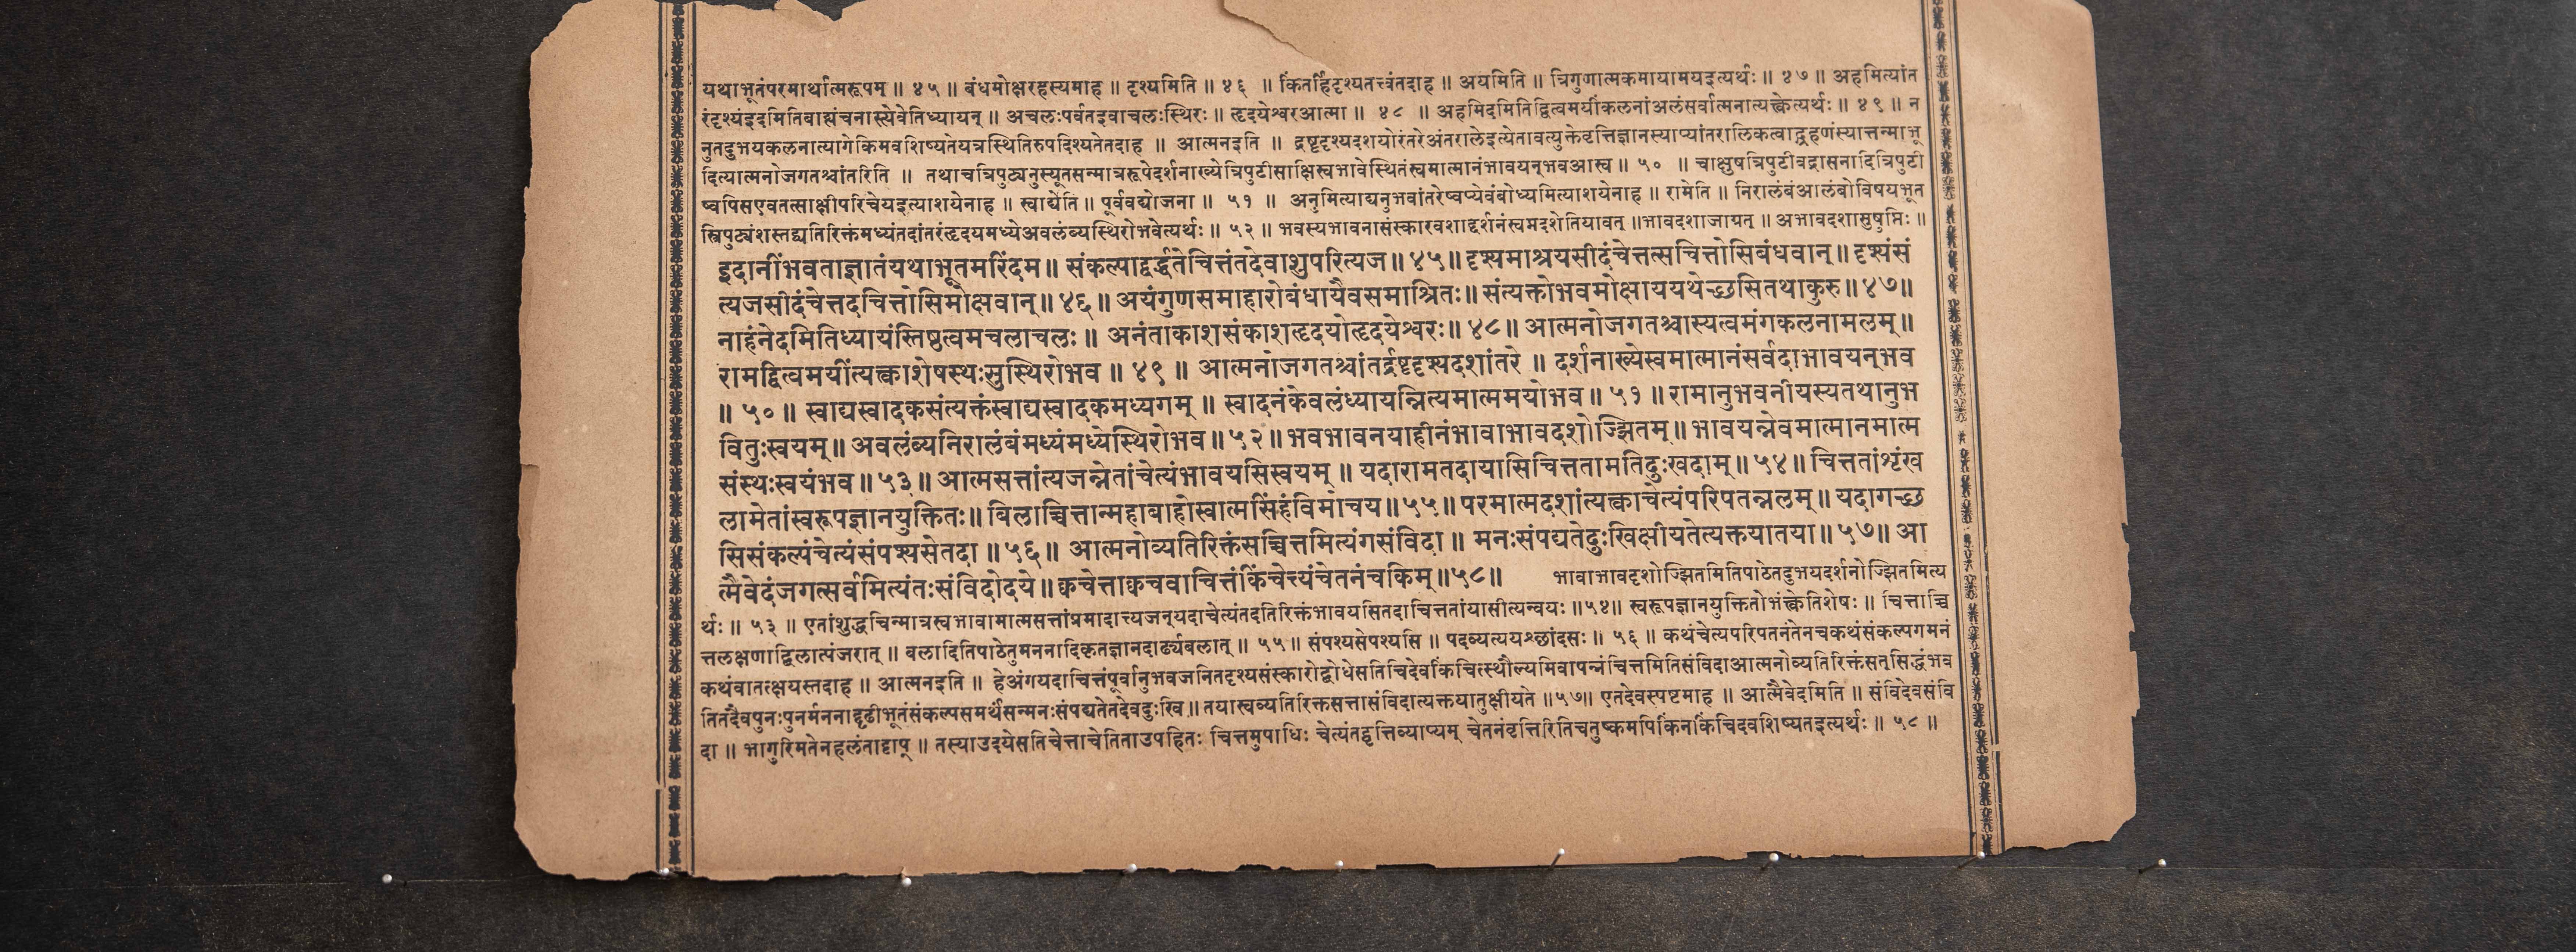 यथाभूतंपरमार्थात्मरूपम् ॥ ४५ ॥ बंधमोक्षरहस्यमाह ॥ दृश्यमिति ॥ ४६ ॥ किंतर्हिदृश्यतत्त्वंतदाह ॥ अयमिति ॥ त्रिगुणात्मकमायामयइत्यर्थः ॥ ४७ ॥ अहमित्यांत
रंदृश्यंइदमितिबाह्यंचनास्त्येवेतिध्यायन् ॥ अचलःपर्वतइवाचलःस्थिरः ॥ हृदयेश्वरआत्मा ॥ ४८ ॥ अहमिदमितिद्वित्वमयींकलनांअलंसर्वात्मनात्यक्त्वेत्यर्थः ॥ ४९ ॥ न
नुतदुभयकलनात्यागेकिमवशिष्यतेयत्रस्थितिरुपदिश्यतेतदाह ॥ आत्मनइति ॥ द्रष्टृदृश्यदशयोरंतरेअंतरालेइत्येतावत्युक्तेवृत्तिज्ञानस्याप्यांतरालिकत्वाद्ग्रहणंस्यात्तन्माभू
दित्यात्मनोजगतश्चांतरिति ॥ तथाचत्रिपुट्यनुस्यूतसन्मात्ररूपेदर्शनाख्येत्रिपुटीसाक्षिस्वभावेस्थितंस्वमात्मानंभावयन्भवआस्व ॥ ५० ॥ चाक्षुषत्रिपुटीवद्रासनादित्रिपुटी
ष्वपिसएवतत्साक्षीपरिचेयइत्याशयेनाह ॥ स्वाद्येति ॥ पूर्ववद्योजना ॥ ५१ ॥ अनुमित्याद्यनुभवांतरेष्वप्येवंबोध्यमित्याशयेनाह ॥ रामेति ॥ निरालंबंआलंबोविषयभूत
स्त्रिपुट्यंशस्तद्व्यतिरिक्तंमध्यंतदांतरंहृदयमध्येअवलंब्यस्थिरोभवेत्यर्थः ॥ ५२ ॥ भवस्यभावनासंस्कारवशाद्दर्शनंस्वप्नदशेतियावत् ॥भावदशाजाग्रत् ॥ अभावदशासुषुप्तिः ॥
इदानींभवताज्ञातंयथाभूतमरिंदम॥ संकल्पाद्वर्द्धतेचित्तंतदेवाशुपरित्यज॥४५॥दृश्यमाश्रयसीदंचेत्तत्सचित्तोसिबंधवान्॥दृश्यंसं
त्यजसीदंचेत्तदचित्तोसिमोक्षवान्॥४६॥अयंगुणसमाहारोबंधायैवसमाश्रितः॥संत्यक्तोभवमोक्षाययथेच्छसितथाकुरु॥४७॥
नाहंनेदमितिध्यायंस्तिष्ठत्वमचलाचलः॥ अनंताकाशसंकाशहृदयोहृदयेश्वरः॥४८॥आत्मनोजगतश्चास्यत्वमंगकलनामलम्॥
रामद्वित्वमयींत्यक्त्वाशेषस्थःसुस्थिरोभव॥ ४९॥ आत्मनोजगतश्चांतर्द्रष्टृदृश्यदशांतरे ॥ दर्शनाख्येस्वमात्मानंसर्वदाभावयन्भव
॥ ५० ॥ स्वाद्यस्वादकसंत्यक्तंस्वाद्यस्वादकमध्यगम् ॥ स्वादनंकेवलंध्यायन्नित्यमात्ममयोभव॥ ५१ ॥रामानुभवनीयस्यतथानुभ
वितुःस्वयम्॥अवलंब्यनिरालंबंमध्यंमध्येस्थिरोभव॥५२॥भवभावनयाहीनंभावाभावदशोज्झितम्॥भावयन्नेवमात्मानमात्म
संस्थःस्वयंभव॥५३॥आत्मसत्तांत्यजन्नेतांचेत्यंभावयसिस्वयम्॥ यदारामतदायासिचित्ततामतिदुःखदाम्॥५४॥चित्ततांशृंख
लामेतांस्वरूपज्ञानयुक्तितः॥बिलाच्चित्तान्महाबाहोस्वात्मसिंहंविमोचय॥५५॥परमात्मदशांत्यक्त्वाचेत्यंपरिपतन्नलम्॥यदागच्छ
सिसंकल्पंचेत्यंसंपश्यसेतदा ॥५६॥ आत्मनोव्यतिरिक्तंसच्चित्तमित्यंगसंविदा॥ मनःसंपद्यतेदुःखिक्षीयतेत्यक्तयातया॥५७॥ आ
त्मैवेदंजगत्सर्वमित्यंतःसंविदोदये॥क्वचेत्ताक्वचवाचित्तंकिंचेत्यंचेतनंचकिम्॥५८॥ भावाभावदृशोज्झितमितिपाठेतदुभयदर्शनोज्झितमित्य
र्थः ॥ ५३ ॥ एतांशुद्धचिन्मात्रस्वभावामात्मसत्तांप्रमादात्त्यजन्यदाचेत्यंतदतिरिक्तंभावयसितदाचित्ततांयासीत्यन्वयः ॥५४॥ स्वरूपज्ञानयुक्तितोभंक्त्वेतिशेषः ॥ चित्ताच्चि
त्तलक्षणाद्बिलात्पंजरात् ॥ बलादितिपाठेतुमननादिकृतज्ञानदार्ढ्यबलात् ॥ ५५॥ संपश्यसेपश्यसि ॥ पदव्यत्ययश्छांदसः ॥ ५६ ॥ कथंचेत्यपरिपतनंतेनचकथंसंकल्पगमनं
कथंवातत्क्षयस्तदाह ॥ आत्मनइति ॥ हेअंगयदाचित्तंपूर्वानुभवजनितदृश्यसंस्कारोद्बोधेसतिचिदेवकिंचित्स्थौल्यमिवापन्नंचित्तमितिसंविदाआत्मनोव्यतिरिक्तंसत्सिद्धंभव
तितदैवपुनःपुनर्मननाद्दृढीभूतंसंकल्पसमर्थंसन्मनःसंपद्यतेतदेवदुःखि॥ तयास्वव्यतिरिक्तसत्तासंविदात्यक्तयातुक्षीयते ॥५७॥ एतदेवस्पष्टमाह ॥ आत्मैवेदमिति ॥ संविदेवसंवि
दा ॥ भागुरिमतेनहलंताट्टाप् ॥ तस्याउदयेसतिचेत्ताचेतिताउपहितः चित्तमुपाधिः चेत्यंतद्वृत्तिव्याप्यम् चेतनंवृत्तिरितिचतुष्कमपिकिंनकिंचिदवशिष्यतइत्यर्थः ॥ ५८ ॥